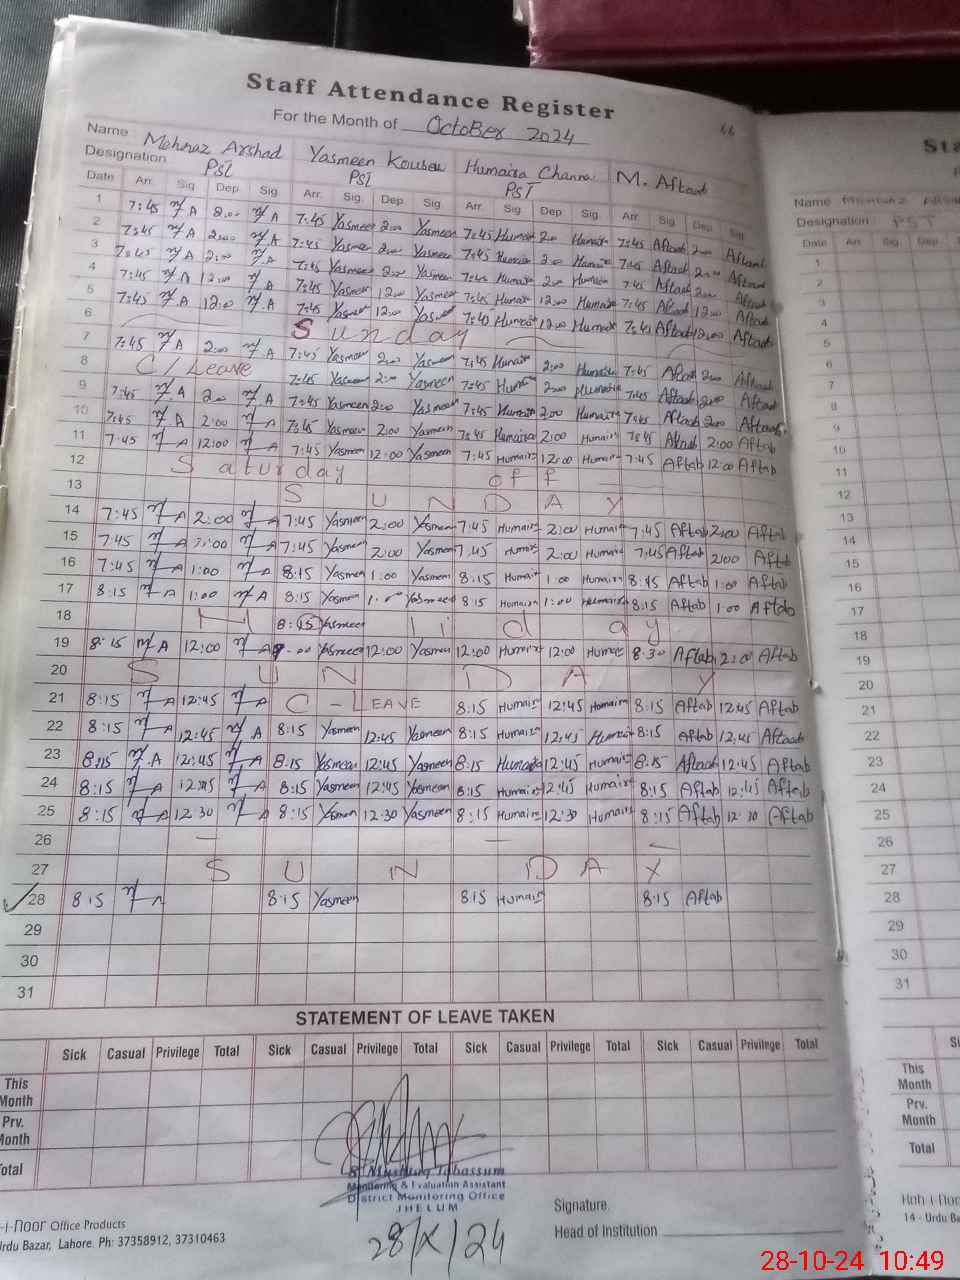 Staff Attendance Register
For the Month of October 2024
Name Mehnaz Arshad Yasmeen Kouser Humaira Channa M. Aftab
Designation PST PST PST
Date Arr. Sig Dep Sig. Arr. Sig. Dep Sig. Arr. Sig. Dep Sig. Arr. Sig. Dep. Sig.
1 7:45 M.A 2:00 M.A 7:45 Yasmeen 2:00 Yasmeen 7:45 Humaira 2:00 Humaira 7:45 Aftab 2:00 Aftab
2 7:45 M.A 2:00 M.A 7:45 Yasmeen 2:00 Yasmeen 7:45 Humaira 2:00 Humaira 7:45 Aftab 2:00 Aftab
3 7:45 M.A 2:00 M.A 7:45 Yasmeen 2:00 Yasmeen 7:45 Humaira 2:00 Humaira 7:45 Aftab 2:00 Aftab
4 7:45 M.A 12:00 M.A 7:45 Yasmeen 12:00 Yasmeen 7:45 Humaira 12:00 Humaira 7:45 Aftab 12:00 Aftab
5 7:45 M.A 12:00 M.A 7:45 Yasmeen 12:00 Yasmeen 7:40 Humaira 12:00 Humaira 7:40 Aftab 12:00 Aftab
6 Sunday
7 7:45 M.A 2:00 M.A 7:45 Yasmeen 2:00 Yasmeen 7:45 Humaira 2:00 Humaira 7:45 Aftab 2:00 Aftab
8 C/Leave 7:45 Yasmeen 2:00 Yasmeen 7:45 Humaira 2:00 Humaira 7:45 Aftab 2:00 Aftab
9 7:45 M.A 2:00 M.A 7:45 Yasmeen 2:00 Yasmeen 7:45 Humaira 2:00 Humaira 7:45 Aftab 2:00 Aftab
10 7:45 M.A 2:00 M.A 7:45 Yasmeen 2:00 Yasmeen 7:45 Humaira 2:00 Humaira 7:45 Aftab 2:00 Aftab
11 7:45 M.A 12:00 M.A 7:45 Yasmeen 12:00 Yasmeen 7:45 Humaira 12:00 Humaira 7:45 Aftab 12:00 Aftab
12 Saturday off
13 SUNDAY
14 7:45 M.A 2:00 M.A 7:45 Yasmeen 2:00 Yasmeen 7:45 Humaira 2:00 Humaira 7:45 Aftab 2:00 Aftab
15 7:45 M.A 2:00 M.A 7:45 Yasmeen 2:00 Yasmeen 7:45 Humaira 2:00 Humaira 7:45 Aftab 2:00 Aftab
16 7:45 M.A 1:00 M.A 8:15 Yasmeen 1:00 Yasmeen 8:15 Humaira 1:00 Humaira 8:45 Aftab 1:00 Aftab
17 8:15 M.A 1:00 M.A 8:15 Yasmeen 1:00 Yasmeen 8:15 Humaira 1:00 Humaira 8:15 Aftab 1:00 Aftab
18 H 8:15 Yasmeen liday
19 8:15 M.A 12:00 M.A Yasmeen 12:00 Yasmeen 12:00 Humaira 12:00 Humaira 8:30 Aftab 12:00 Aftab
20 SUNDAY
21 8:15 M.A 12:45 M.A C-LEAVE 8:15 Humaira 12:45 Humaira 8:15 Aftab 12:45 Aftab
22 8:15 M.A 12:45 M.A 8:15 Yasmeen 12:45 Yasmeen 8:15 Humaira 12:45 Humaira 8:15 Aftab 12:45 Aftab
23 8:15 M.A 12:45 M.A 8:15 Yasmeen 12:45 Yasmeen 8:15 Humaira 12:45 Humaira 8:15 Aftab 12:45 Aftab
24 8:15 M.A 12:45 M.A 8:15 Yasmeen 12:45 Yasmeen 8:15 Humaira 12:45 Humaira 8:15 Aftab 12:45 Aftab
25 8:15 M.A 12:30 M.A 8:15 Yasmeen 12:30 Yasmeen 8:15 Humaira 12:30 Humaira 8:15 Aftab 12:30 Aftab
26 — — —
27 SUNDAY
28 8:15 M.A 8:15 Yasmeen 8:15 Humaira 8:15 Aftab
29
30
31
STATEMENT OF LEAVE TAKEN
Sick Casual Privilege Total Sick Casual Privilege Total Sick Casual Privilege Total Sick Casual Privilege Total
This Month
Prv. Month
Total
Tabassum
Monitoring & Evaluation Assistant
District Monitoring Office
JHELUM
28/X/24
Signature.
Head of Institution
-i-noor Office Products
Urdu Bazar, Lahore. Ph: 37358912, 37310463
Sta
Name
Designation PST
Date Arr. Sig. Dep
1
2
3
4
5
6
7
8
9
10
11
12
13
14
15
16
17
18
19
20
21
22
23
24
25
26
27
28
29
30
31
This Month
Prv. Month
Total
14 - Urdu
28-10-24 10:49